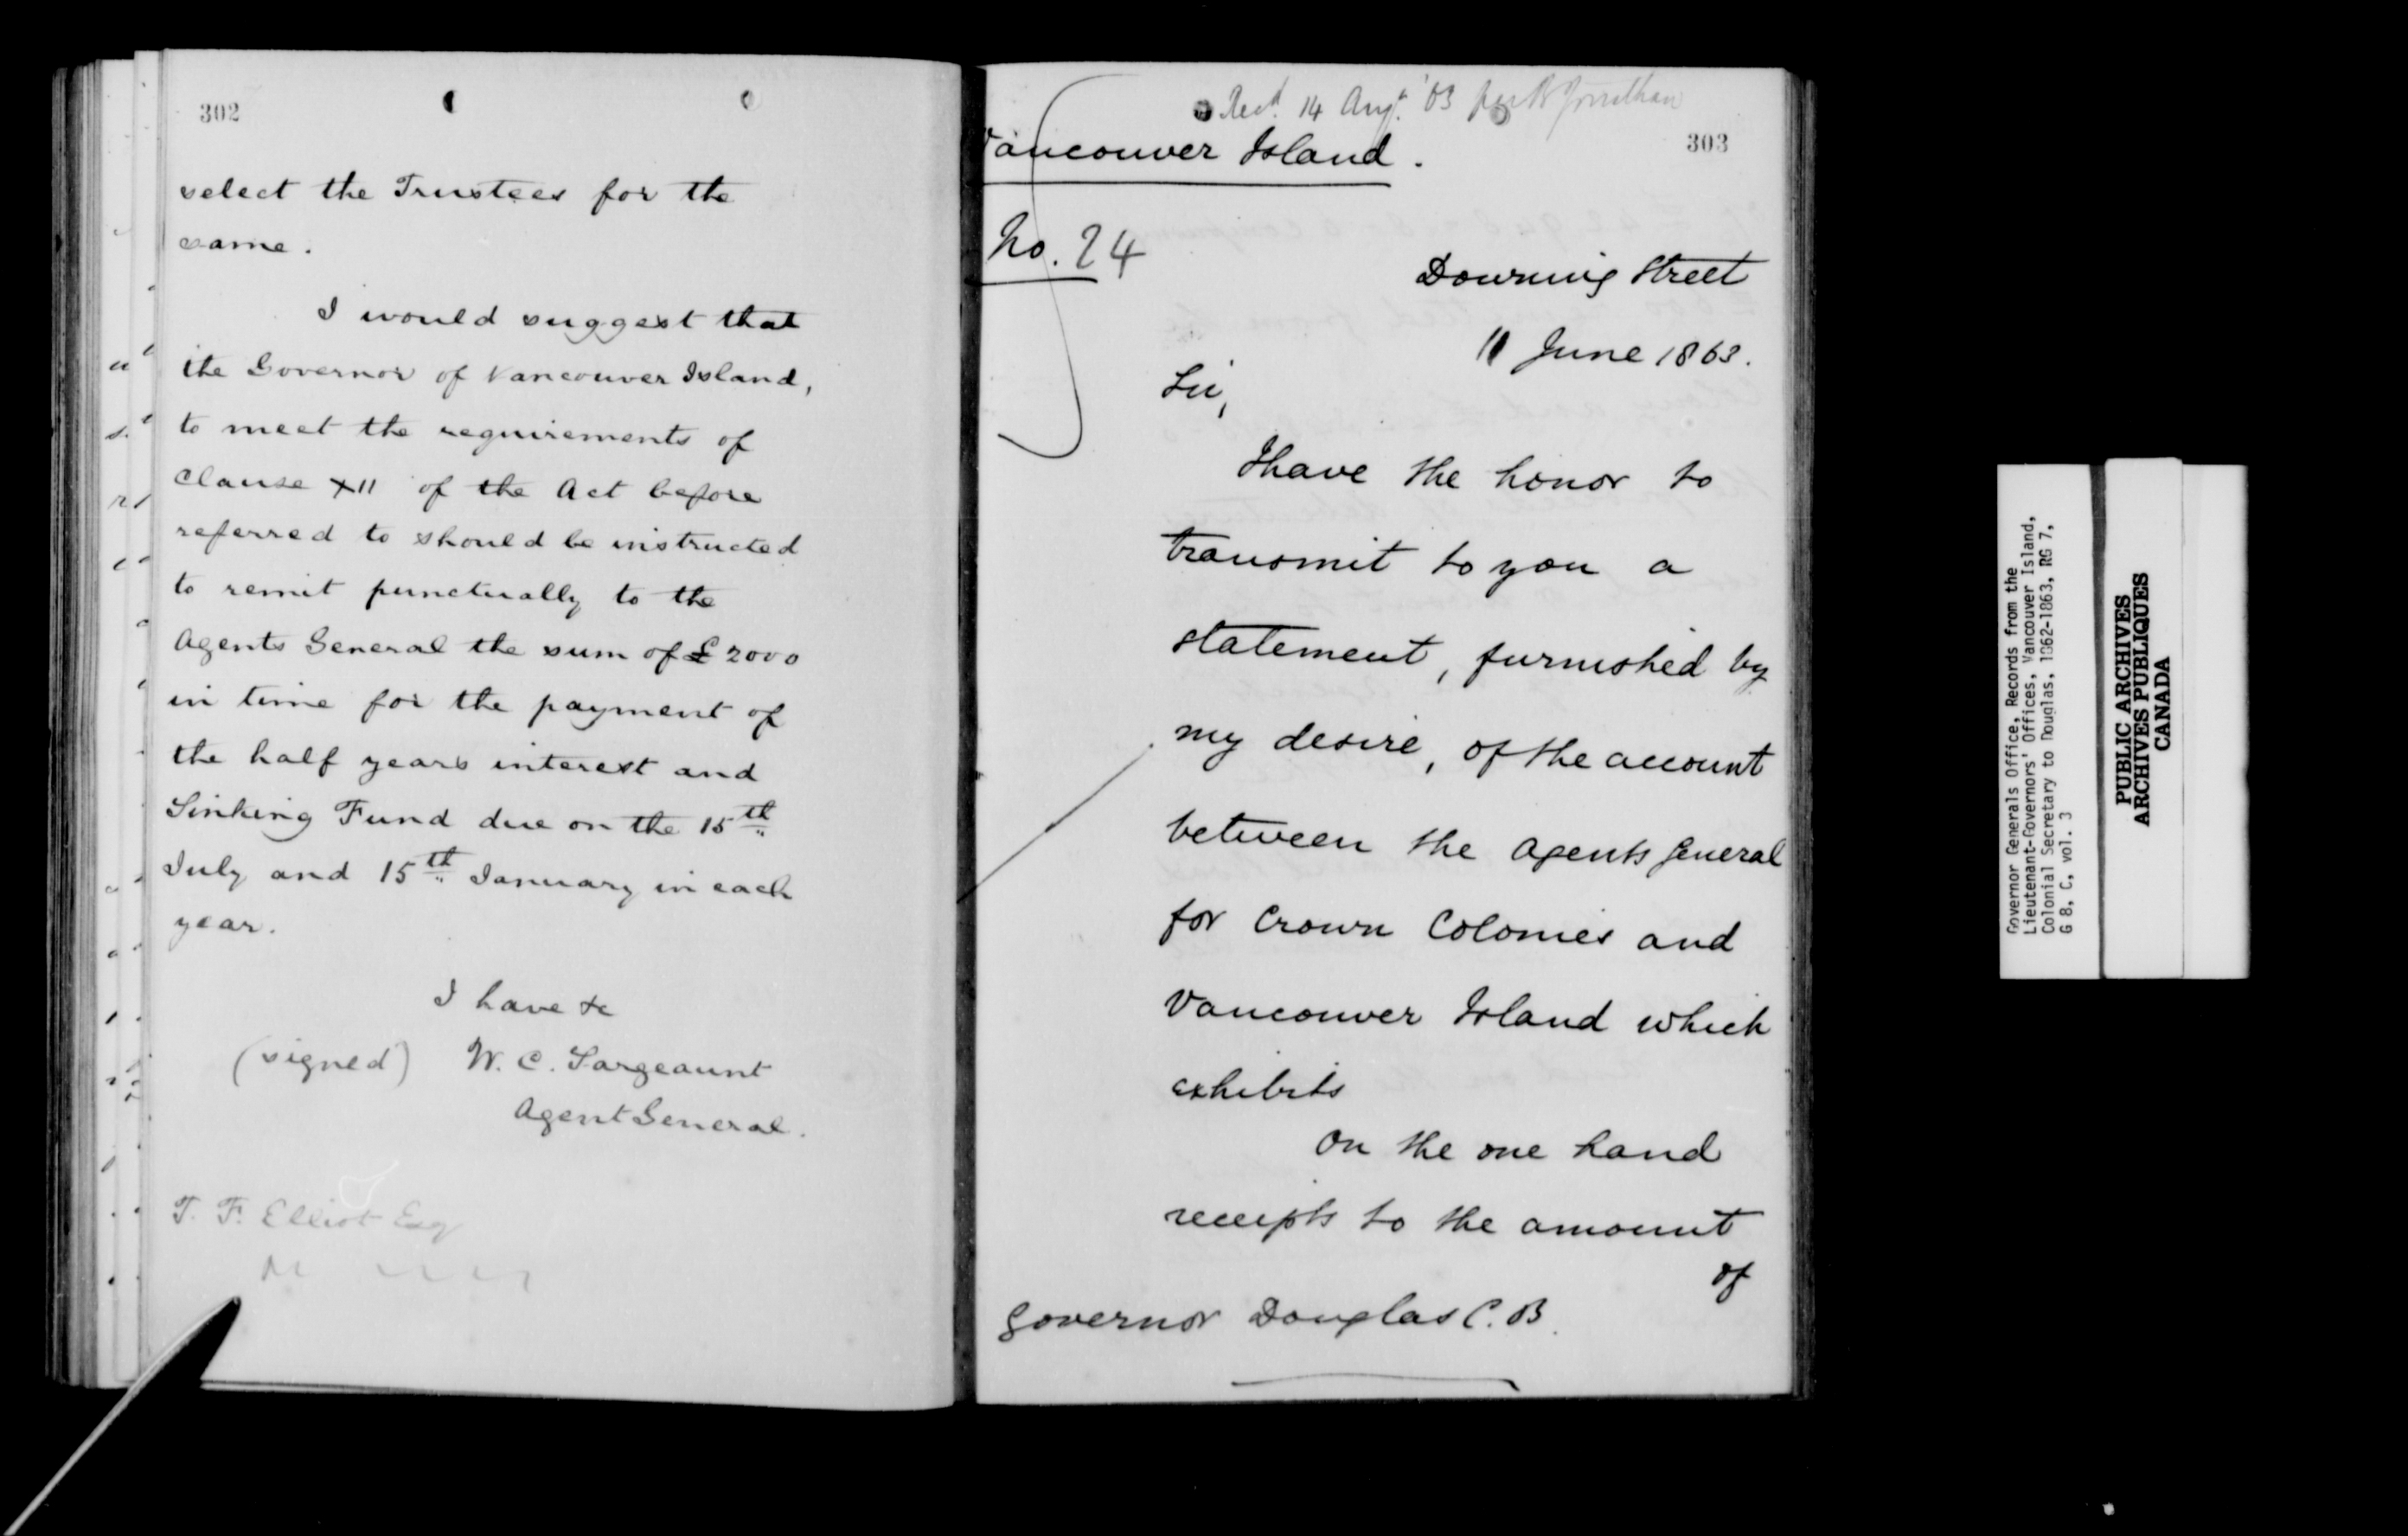 302
select the Trustees for the
same.
I would suggest that
the Governor of Vancouver Island,
to meet the requirements of
Clause XII of the Act before
referred to should be instructed
to remit punctually to the
Agents General the sum of £2000
in time for the payment of
the half years interest and
Sinking Fund due on the 15th
July and 15th January in each
year.
I have &c
(signed) W. C. Sargeaunt
Agent General.
T. F. Elliot Esq
Recd. 14 Augt. '63
303
Vancouver Island.
No. 24
Downing Street
11 June 1863.
Sir,
I have the honor to
transmit to you a
statement, furnished by
my desire, of the account
between the Agents General
for Crown Colonies and
Vancouver Island which
exhibits
On the one hand
receipts to the amount
of
Governor Douglas C.B.
Governor Generals Office, Records from the
Lieutenant-Governors' Offices, Vancouver Island,
Colonial Secretary to Douglas, 1862-1863, RG 7,
G 8, C, vol. 3
PUBLIC ARCHIVES
ARCHIVES PUBLIQUES
CANADA